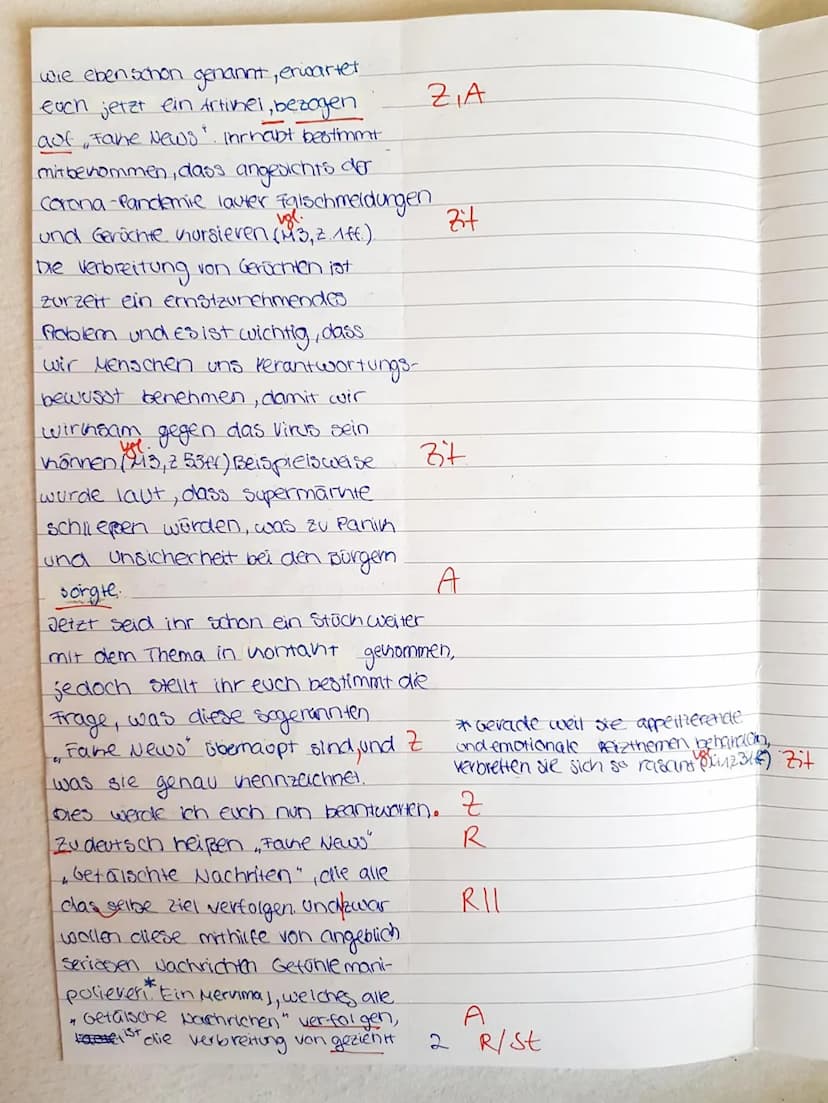 wie eben schon genannt, erwartet
euch jetzt ein Artikel, bezogen Z, A
auf „Fake News". Ihr habt bestimmt
mitbekommen, dass angesichts der
Corona-Pandemie lauter Falschmeldungen
und Gerüchte kursieren (vgl. M3, Z. 1ff.) Zit
Die Verbreitung von Gerüchten ist
zurzeit ein ernstzunehmendes
Problem und es ist wichtig, dass
wir Menschen uns verantwortungs-
bewusst benehmen, damit wir
wirksam gegen das Virus sein
können (vgl. M3, Z 53ff) Beispielsweise Zit
wurde laut, dass Supermärkte
schließen würden, was zu Panik
und Unsicherheit bei den Bürgern
sorgte. A
Jetzt seid ihr schon ein Stück weiter
mit dem Thema in Kontakt gekommen,
jedoch stellt ihr euch bestimmt die
Frage, was diese sogenannten
„Fake News" überhaupt sind, und Z
was sie genau kennzeichnet.
Dies werde ich euch nun beantworten. Z
Zu deutsch heißen „Fake News" R
„Gefälschte Nachriten", die alle
das selbe Ziel verfolgen. Und zwar R||
wollen diese mithilfe von angeblich
seriösen Nachrichten Gefühle mani-
polieren.* Ein Merkmal, welches alle
„Gefälsche Nachrichen" verfolgen, A
ist die Verbreitung von gezielt 2 R/St
* Gerade weil sie appetierende
und emotionale Reizthemen behandeln,
verbreiten sie sich so rasant (vgl. Zit